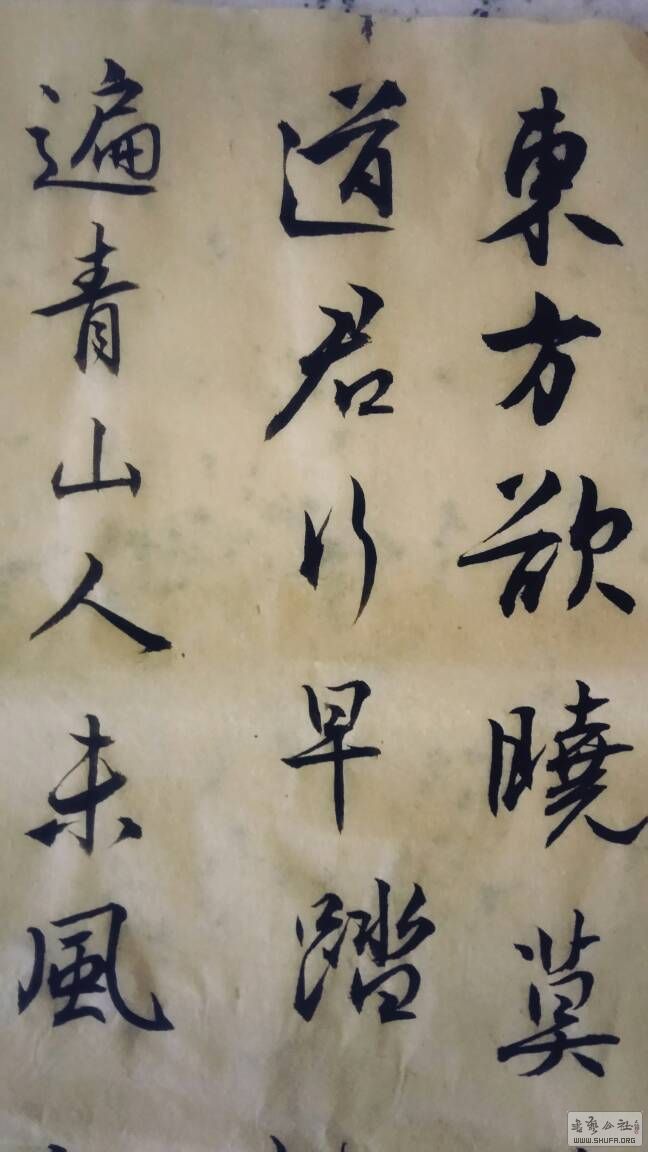 東方欲曉莫
道君行早踏
遍青山人未風
书艺公社
WWW.SHUFA.ORG